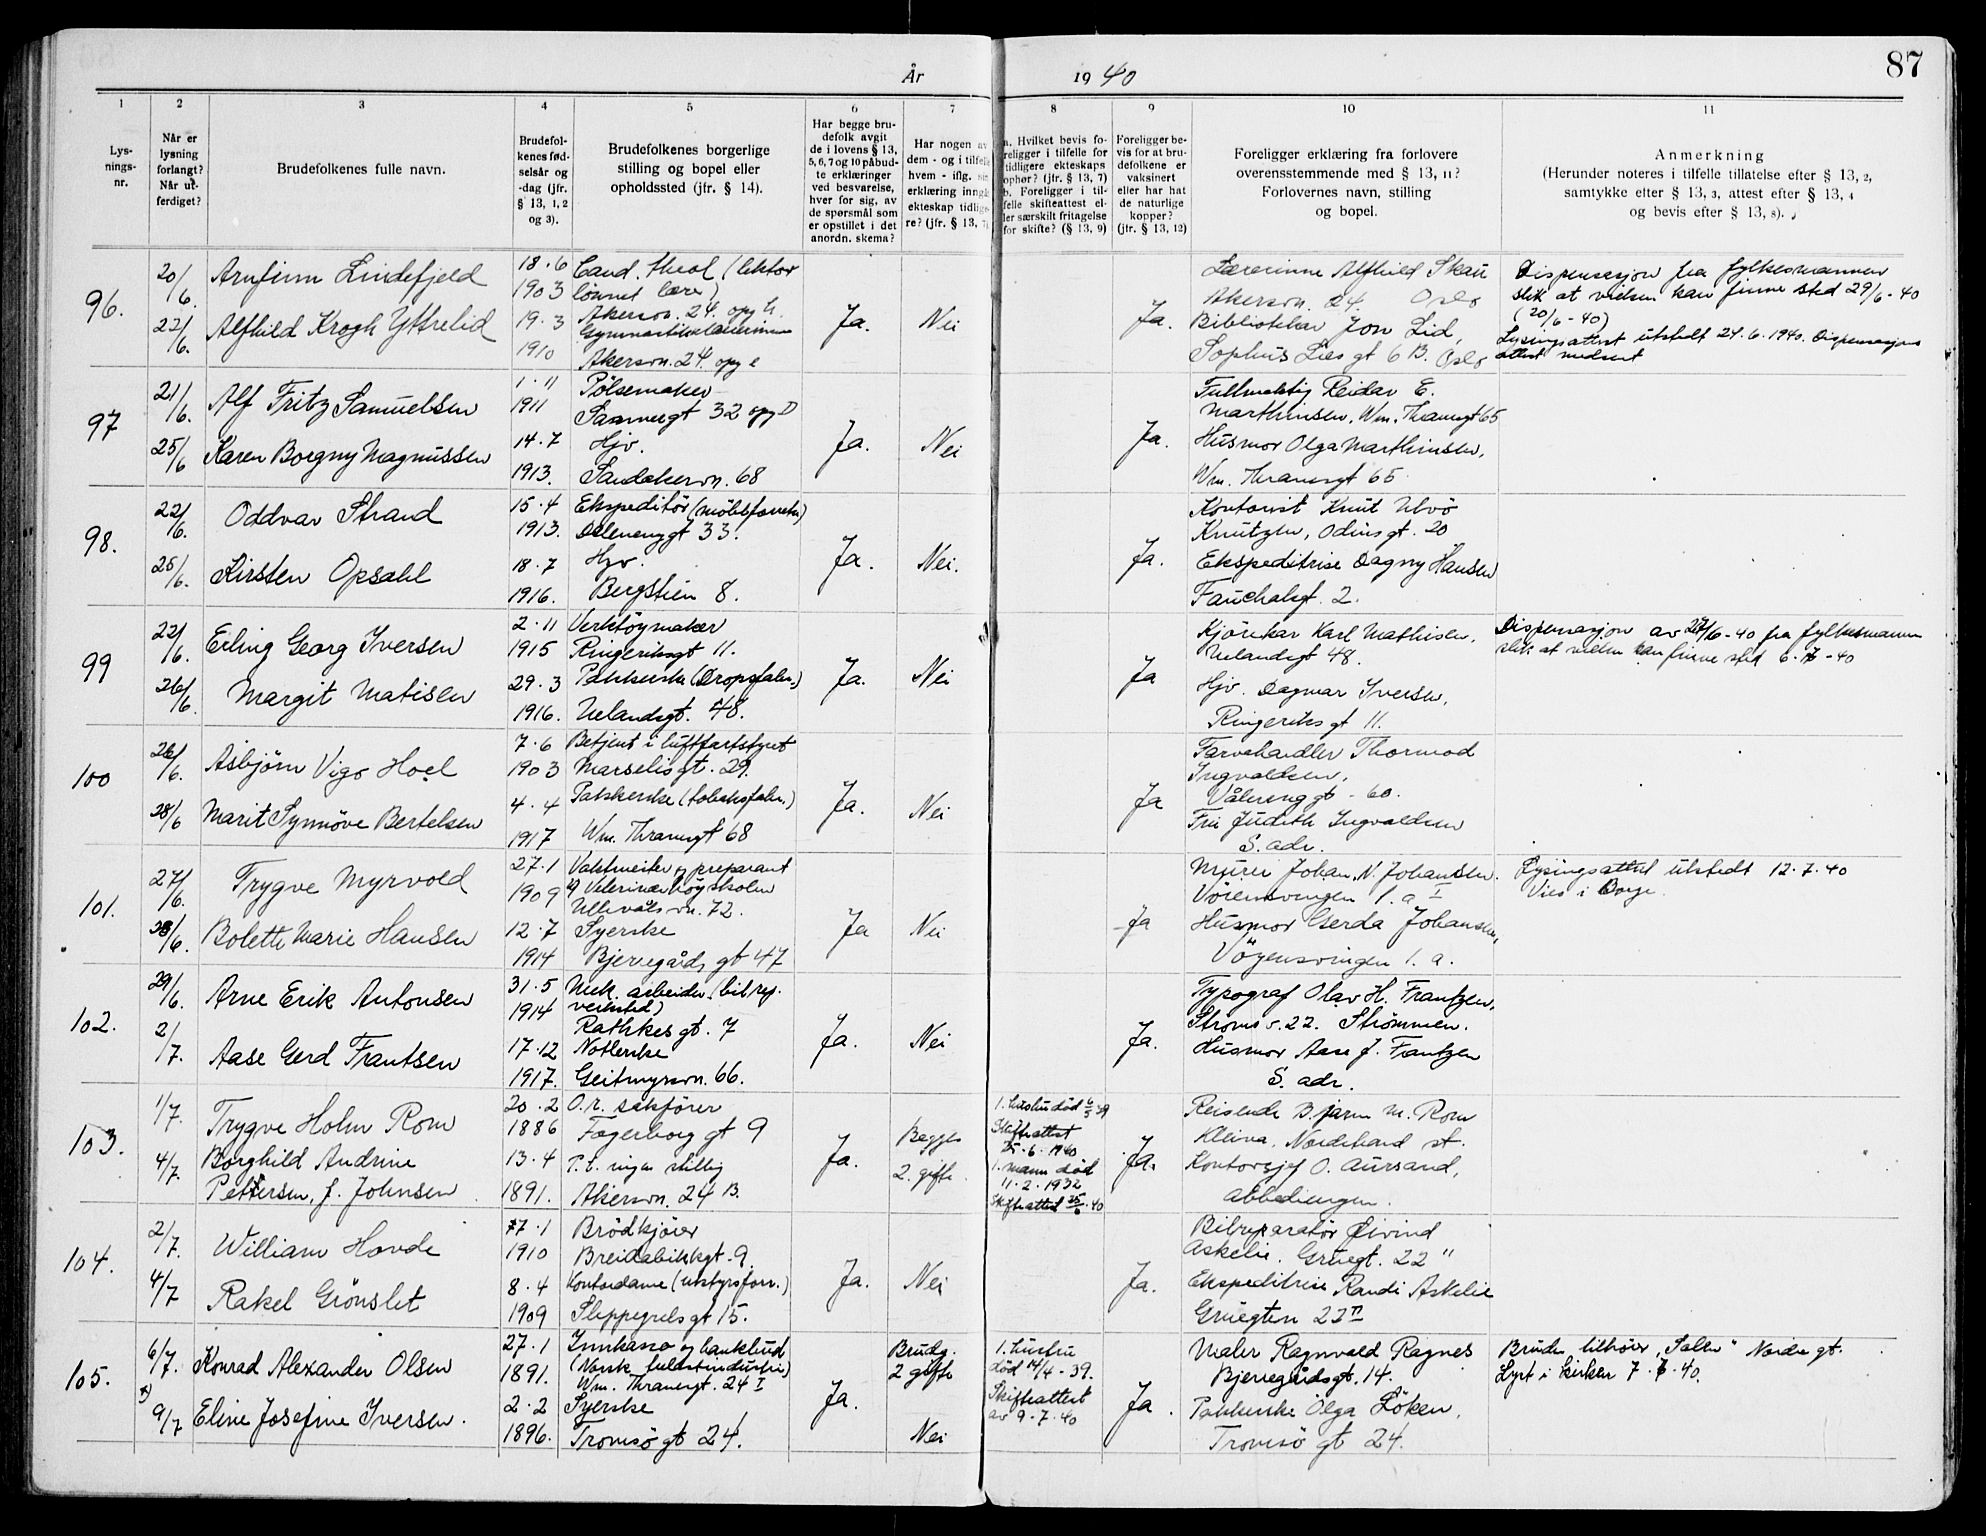 År 1940
87
1 2 3 4 5 6 7 8 9 10 11
Lys-
nings-
nr.
Når er
lysning
forlangt?
Når ut-
ferdiget?
Brudefolkenes fulle navn.
Brudefol-
kenes fød-
selsår og
-dag (jfr.
§ 13, 1, 2
og 3).
Brudefolkenes borgerlige
stilling og bopel eller
opholdssted (jfr. § 14).
Har begge bru-
defolk avgit
de i lovens § 13,
5, 6, 7 og 10 påbud-
te erklæringer
ved besvarelse,
hver for sig, av
de spørsmål som
er opstillet i det
anordn. skema?
Har nogen av
dem - og i tilfelle
hvem - iflg.
erklæring inngåt
ekteskap tidlige-
re? (jfr. § 13,
a. Hvilket bevis fo-
religger i tilfelle for
tidligere ekteskaps
ophør? (jfr. § 13, 7)
b. Foreligger i til-
felle skifteattest el-
ler særskilt fritagelse
for skifte? (§ 13, 9)
Foreligger be-
vis for at bru-
defolkene er
vaksinert
eller har hat
de naturlige
kopper?
(jfr. § 13, 12)
Foreligger erklæring fra forlovere
overensstemmende med § 13, 11?
Forlovernes navn, stilling
og bopel.
Anmerkning
(Herunder noteres i tilfelle tillatelse efter § 13, 2,
samtykke efter § 13, 3, attest efter § 13, 4
og bevis efter § 13, 8).
96.
20/6.
22/6.
Arnfinn Lindefjeld
Alfhild Krogh Yttrelid
18.6
1903
19.3
1910
Cand. theol (lektor
lønnet lærer)
Akersvn. 24. opg h.
Gymnastikklærerinne
Akersvn. 24. opg e
Ja.
Nei
Ja.
Lærerinne Alfhild Skau
Akersvn. 24. Oslo
Bibliotekar Jon Lid,
Sophus Lies gt 6 B. Oslo
Dispensasjon fra fylkesmannen
slik at vielsen kan finne sted 29/6-40
(20/6-40)
Lysingsattest utstedt 24.6.1940. Dispensasjons
attest medsent
97
21/6.
25/6
Alf Fritz Samuelsen
Karen Borgny Magnussen
1.11
1911
14.7
1913.
Pølsemaker
32 opg D
Hjv.
Sandakervn. 68
Ja.
Nei
Ja.
Fullmektig Reidar E.
Marthinsen, Wm. Thranesgt 65
Husmor Olga Marthinsen,
Wm. Thranesgt 65
98.
22/6.
25/6.
Oddvar Strand
Kirsten Opsahl
15.4
1913.
18.7
1916.
Ekspeditør (møbelforretn)
Dælenenggt 33.
Hjv.
Bergstien 8.
Ja.
Nei.
Ja.
Kontorist Knut Utvö
Knutzen, Odinsgt. 20
Ekspeditrise Dagny Hansen
Fauchalsgt. 2.
99
22/6.
26/6.
Erling Georg Iversen
Margit Matisen
2.11
1915
29.3
1916.
Verktöymaker
Ringeriksgt 11.
Pakkerske (Dropsfabr.)
Uelandsgt. 48.
Ja.
Nei
Ja
Kjörekar Karl Mathisen,
Uelandsgt 48.
Hjv. Dagmar Iversen,
Ringeriksgt 11.
Dispensasjon av 27/6-40 fra fylkesmannen
slik at vielsen kan finne sted 6-7-40
100
26/6.
28/6
Asbjörn Vigo Hoel
Marit Synnöve Bertelsen
7.6
1903
4.4
1917
Betjent i luftfartstyret
Marselisgt. 29.
Pakkerske (tobaksfabr.)
Wm. Thranesgt 68
Ja.
Nei
Ja
Farvehandler Thormod
Ingvaldsen,
Vålerenggt - 60.
Fru Judith Ingvaldsen
S. adr.
101.
27/6.
28/6.
Trygve Myrvold
Bolette Marie Hansen
27.1
1909
12.7
1914
Vaktmester og preparant
v/ Veterinærhögskolen
Ullevålsvn. 72.
Syerske
Bjerregårds gt 47
Ja
Nei
Ja
Murer Johan N. Johansen.
Vöiensvingen 1. a I
Husmor Gerda Johansen,
Vöyensvingen 1. a.
Lysingsattest utstedt 12.7.40
Vies i Borge.
102.
29/6.
2/7.
Arne Erik Antonsen
Aase Gerd Frantsen
31.5
1914
17.12
1917.
Mek. arbeider. (bilrep.
verksted)
Rathkes gt. 7
Notlerske
Geitmyrsvn. 66.
Ja.
Nei
Ja.
Typograf Olav H. Frantzen,
Stroms v. 22. Strömmen.
Husmor Aase J. Frantzen
S. adr.
103.
1/7.
4/7.
Trygve Holm Rom
Borghild Andrine
Pettersen, f. Johnsen
20.2
1886
13.4
1891.
O.r. sakförer
Fagerborg gt 9
P.t. ingen stilling
Akersvn. 24 B.
Ja.
Begge
2. gifte.
1. hustru död 6/3 39
Skifteattest
25.6.1940
1. mann död
11.2.1932
Skifteattest 25/6.40
Ja.
Reisende Bjarne M. Rom
Kleiva, Nordstrand st.
Kontorsjef O. Aursand,
Abbediengen.
104.
2/7.
4/7
William Hovde
Rakel Grönslet
17.1
1910
8.4
1909
Brödkjörer
Breidablikkgt. 9.
Kontordame (utstyrsforr.)
Sleppegrelsgt 15.
Ja.
Nei
Ja.
Bilreparatör Øivind
Askelie. Grüegt. 22 II
Ekspeditrise Randi Askelie
Grüegten 22 II
105.
6/7.
9/7
Konrad Alexander Olsen
Eline Josefine Iversen.
27.1
1891.
2.2
1896.
Innkasso og bankbud
(Norsk)
Wm. Thranesgt. 24 I
Syerske
Tromsö gt 24.
Ja.
Brudg.
2 gifte
Nei
1. hustru
död 14/4-39.
Skifteattest
av 9.7.40
Ja.
Maler Ragnvald Ragnes
Bjerregårdsgt. 14.
Pakkerske Olga Löken,
Tromsö gt 24.
Bruden tilhörer "Salen" Nordre gt.
Lyst i kirken 7.7.40.